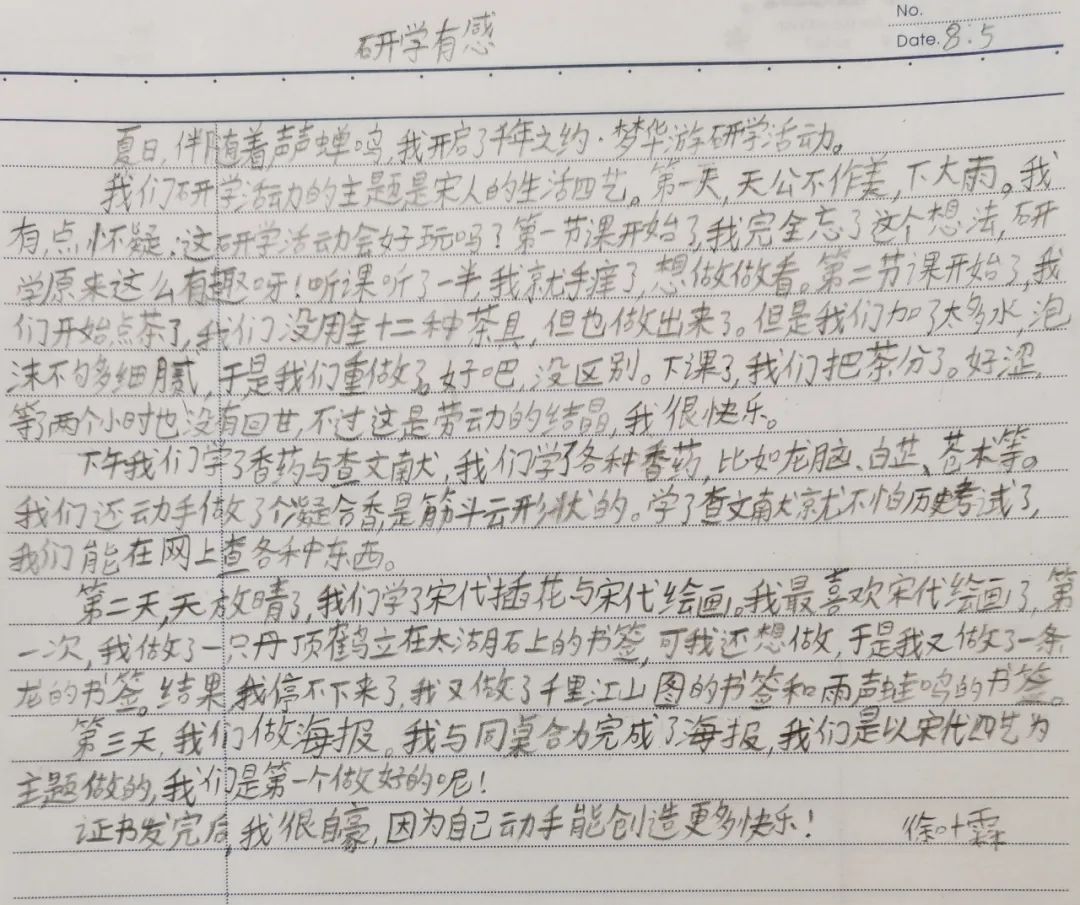 No.
Date. 8.5
研学有感
夏日,伴随着声声蝉鸣,我开启了千年之约·梦华游研学活动。
我们研学活动的主题是宋人的生活四艺。第一天,天公不作美,下大雨。我
有点怀疑:这研学活动会好玩吗?第一节课开始了,我完全忘了这个想法,研
学原来这么有趣呀!听课听了一半,我就手痒了,想做做看。第二节课开始了,我
们开始点茶了,我们没用全十二种茶具,但也做出来了。但是我们加了太多水,泡
沫不够多细腻,于是我们重做了。好吧,没区别。下课了,我们把茶分了。好涩,
等了两个小时也没有回甘,不过这是劳动的结晶,我很快乐。
下午我们学了香药与查文献,我们学了各种香药,比如龙脑、白芷、苍术等。
我们还动手做了个凝合香,是筋斗云形状的。学了查文献就不怕历史考试了,
我们能在网上查各种东西。
第二天,天放晴了,我们学了宋代插花与宋代绘画。我最喜欢宋代绘画了,第
一次,我做了一只丹顶鹤立在太湖石上的书签,可我还想做,于是我又做了一条
龙的书签。结果我停不下来了,我又做了千里江山图的书签和雨声蛙鸣的书签。
第三天,我们做海报。我与同桌合力完成了海报,我们是以宋代四艺为
主题做的,我们是第一个做好的呢!
证书发完后,我很自豪,因为自己动手能创造更多快乐! 徐叶霖